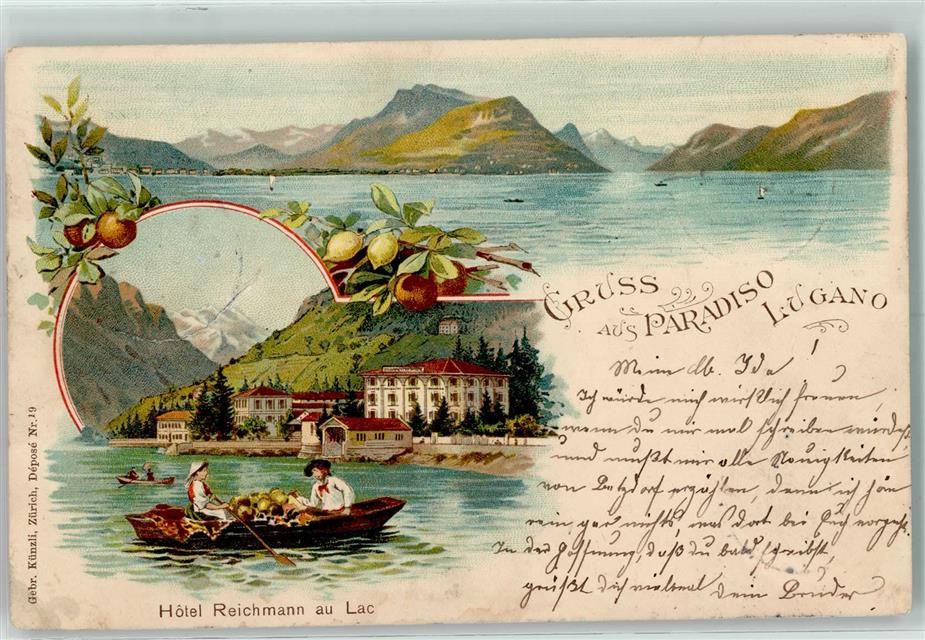 GRUSS
AUS PARADISO
LUGANO
Meine lb. Ida !
Ich würde mich wirklich freuen,
wenn du mir mal schreiben würdest
und mußt mir alle Neuigkeiten
von Betzdorf erzählen, denn ich hör
rein gar nichts was dort bei Euch vorgeht.
In der Hoffnung, daß du bald schreibst,
grüßt Dich vielmal Dein Bruder
Hôtel Reichmann au Lac
Gebr. Künzli, Zürich, Déposé Nr. 19